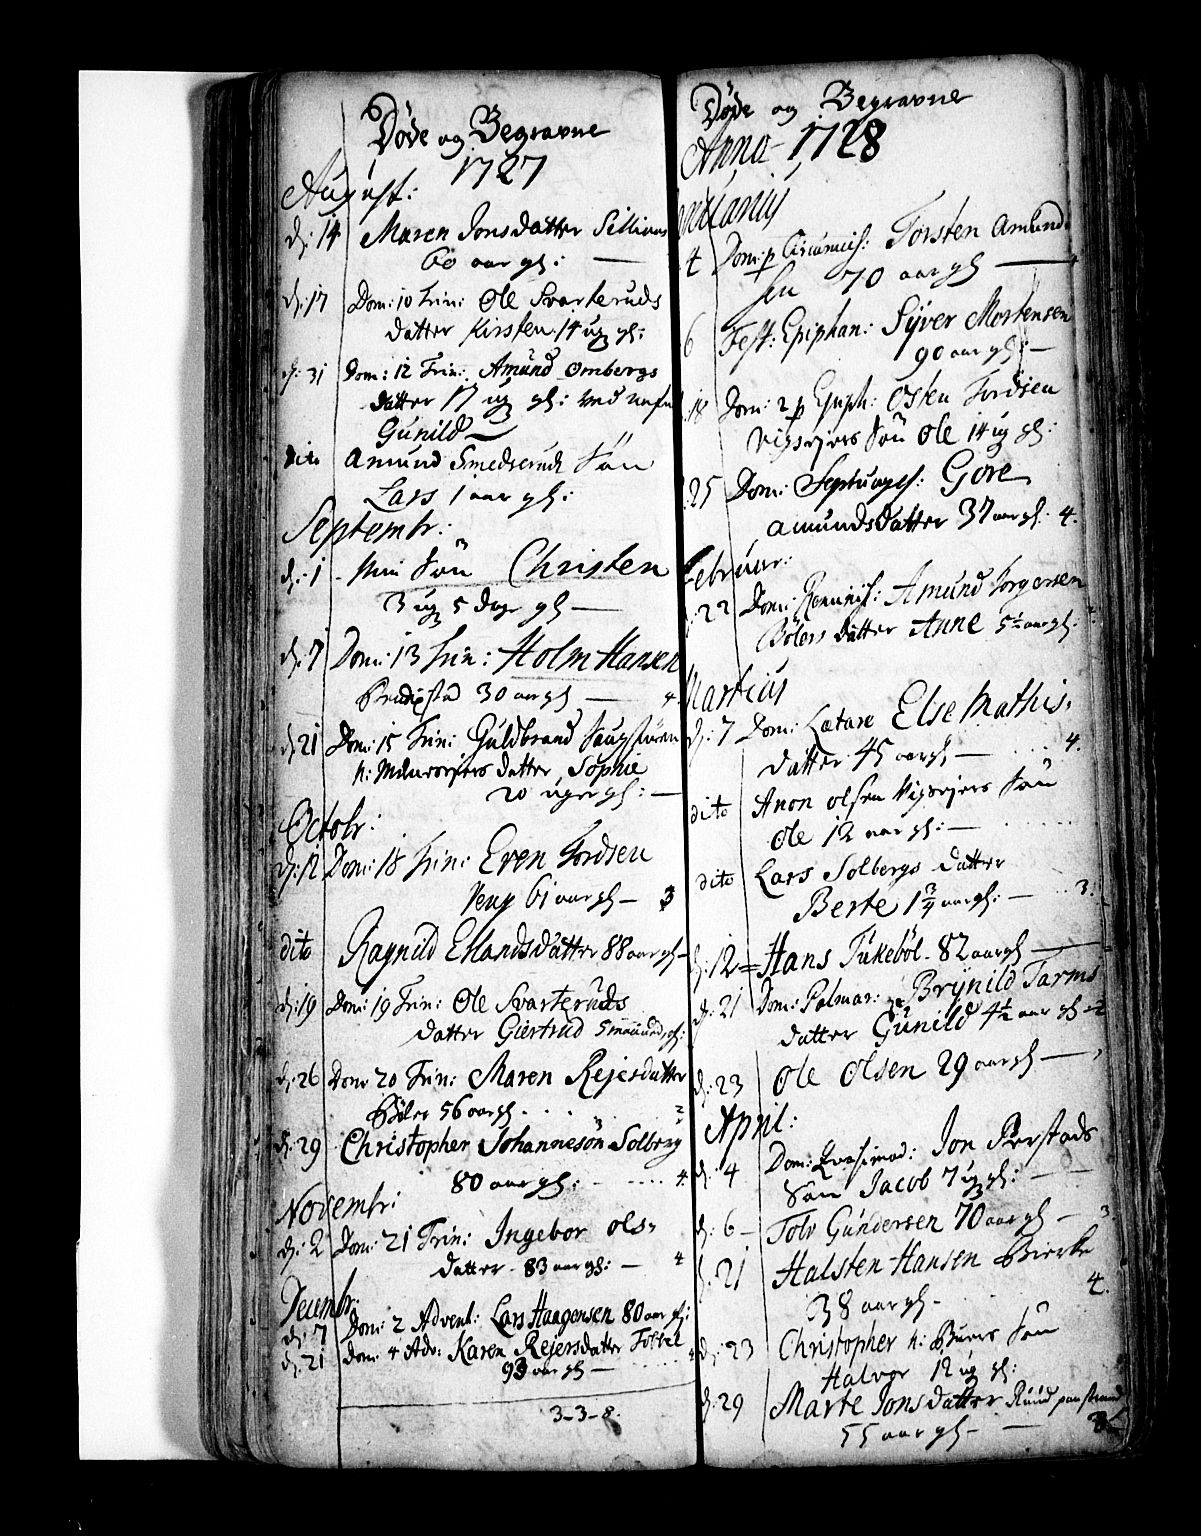 Døde og Begravne
1727
August:
d: 14 Maren Jonsdatter
60 aar gl:
d: 17 Dom: 10 Trin: Ole Svarteruds
datter Kirsten 14 ug gl:
d: 31 Dom: 12 Trin: Amund Ombergs
datter 17 ug gl: ved nafn
Gunild
dito Amund Smedserud Søn
Lars 1 aar gl:
Septembr:
d: 1 - Min Søn Christen
3 ug 5 dage gl
d: 7 Dom: 13 Trin: Holm Hansen
30 aar gl 4.
d: 21 Dom: 15 Trin: Guldbrand
datter Sophie
20 uger gl:
Octobr:
d: 12 Dom: 18 Trin: Even Tordsen
61 aar gl 3
dito Ragnild Ellandsdatter 88 aar gl
d: 19 Dom: 19 Trin: Ole Svarteruds
datter Giertrud 5 gl:
d: 26 Dom 20 Trin: Maren Rejersdatter
Bøler 56 aar gl 2
d: 29 Christopher Johannesøn Solberg
80 aar gl: 4.
Novembr:
d: 2 Dom: 21 Trin: Ingebor Ols-
datter - 83 aar gl: 4
Decembr:
d: 7 Dom: 2 Advent: Lars Haagensen 80 aar gl:
d: 21 Dom: 4 Adv: Karen Rejersdatter
93 aar gl 4
3-3-8.
Døde og Begravne
Anno 1728
4 Dom: p Circumcis: Torsten Amund
sen 70 aar gl
6 Fest: Epiphan: Syver Mortensen
90 aar gl:
18 Dom: 2 p Epiph: Osten Tordsen
Søn Ole 14 ug gl:
25 Dom: Septuages: Gore
Amundsdatter 37 aar gl: 4.
Februar:
22 Dom: Reminis: Amund Torgersen
Bølers datter Anne 5½ aar gl:
Martius
d: 7 Dom: Lætare Else Mathis-
datter 45 aar gl 4.
dito Anon Olsen Søn
Ole 12 aar gl:
dito Lars Solbergs datter
Berte aar gl: 3.
d: 12 Hans Tukebøl - 82 aar gl
d: 21 Dom: Palmar: Brynild
datter Gunild 4½ aar gl
d: 23 Ole Olsen 29 aar gl
April:
d: 4 Dom: Quasimod: Jon Perstads
Søn Jacob 7 ug gl:
d: 6 - Tolv Gundersen 70 aar gl 3.
d: 21 Halsten Hansen Bierke
38 aar gl 4.
d: 23 Christopher Søn
Halvor 12 ug gl:
d: 29 Marte Jonsdatter Ruud
55 aar gl